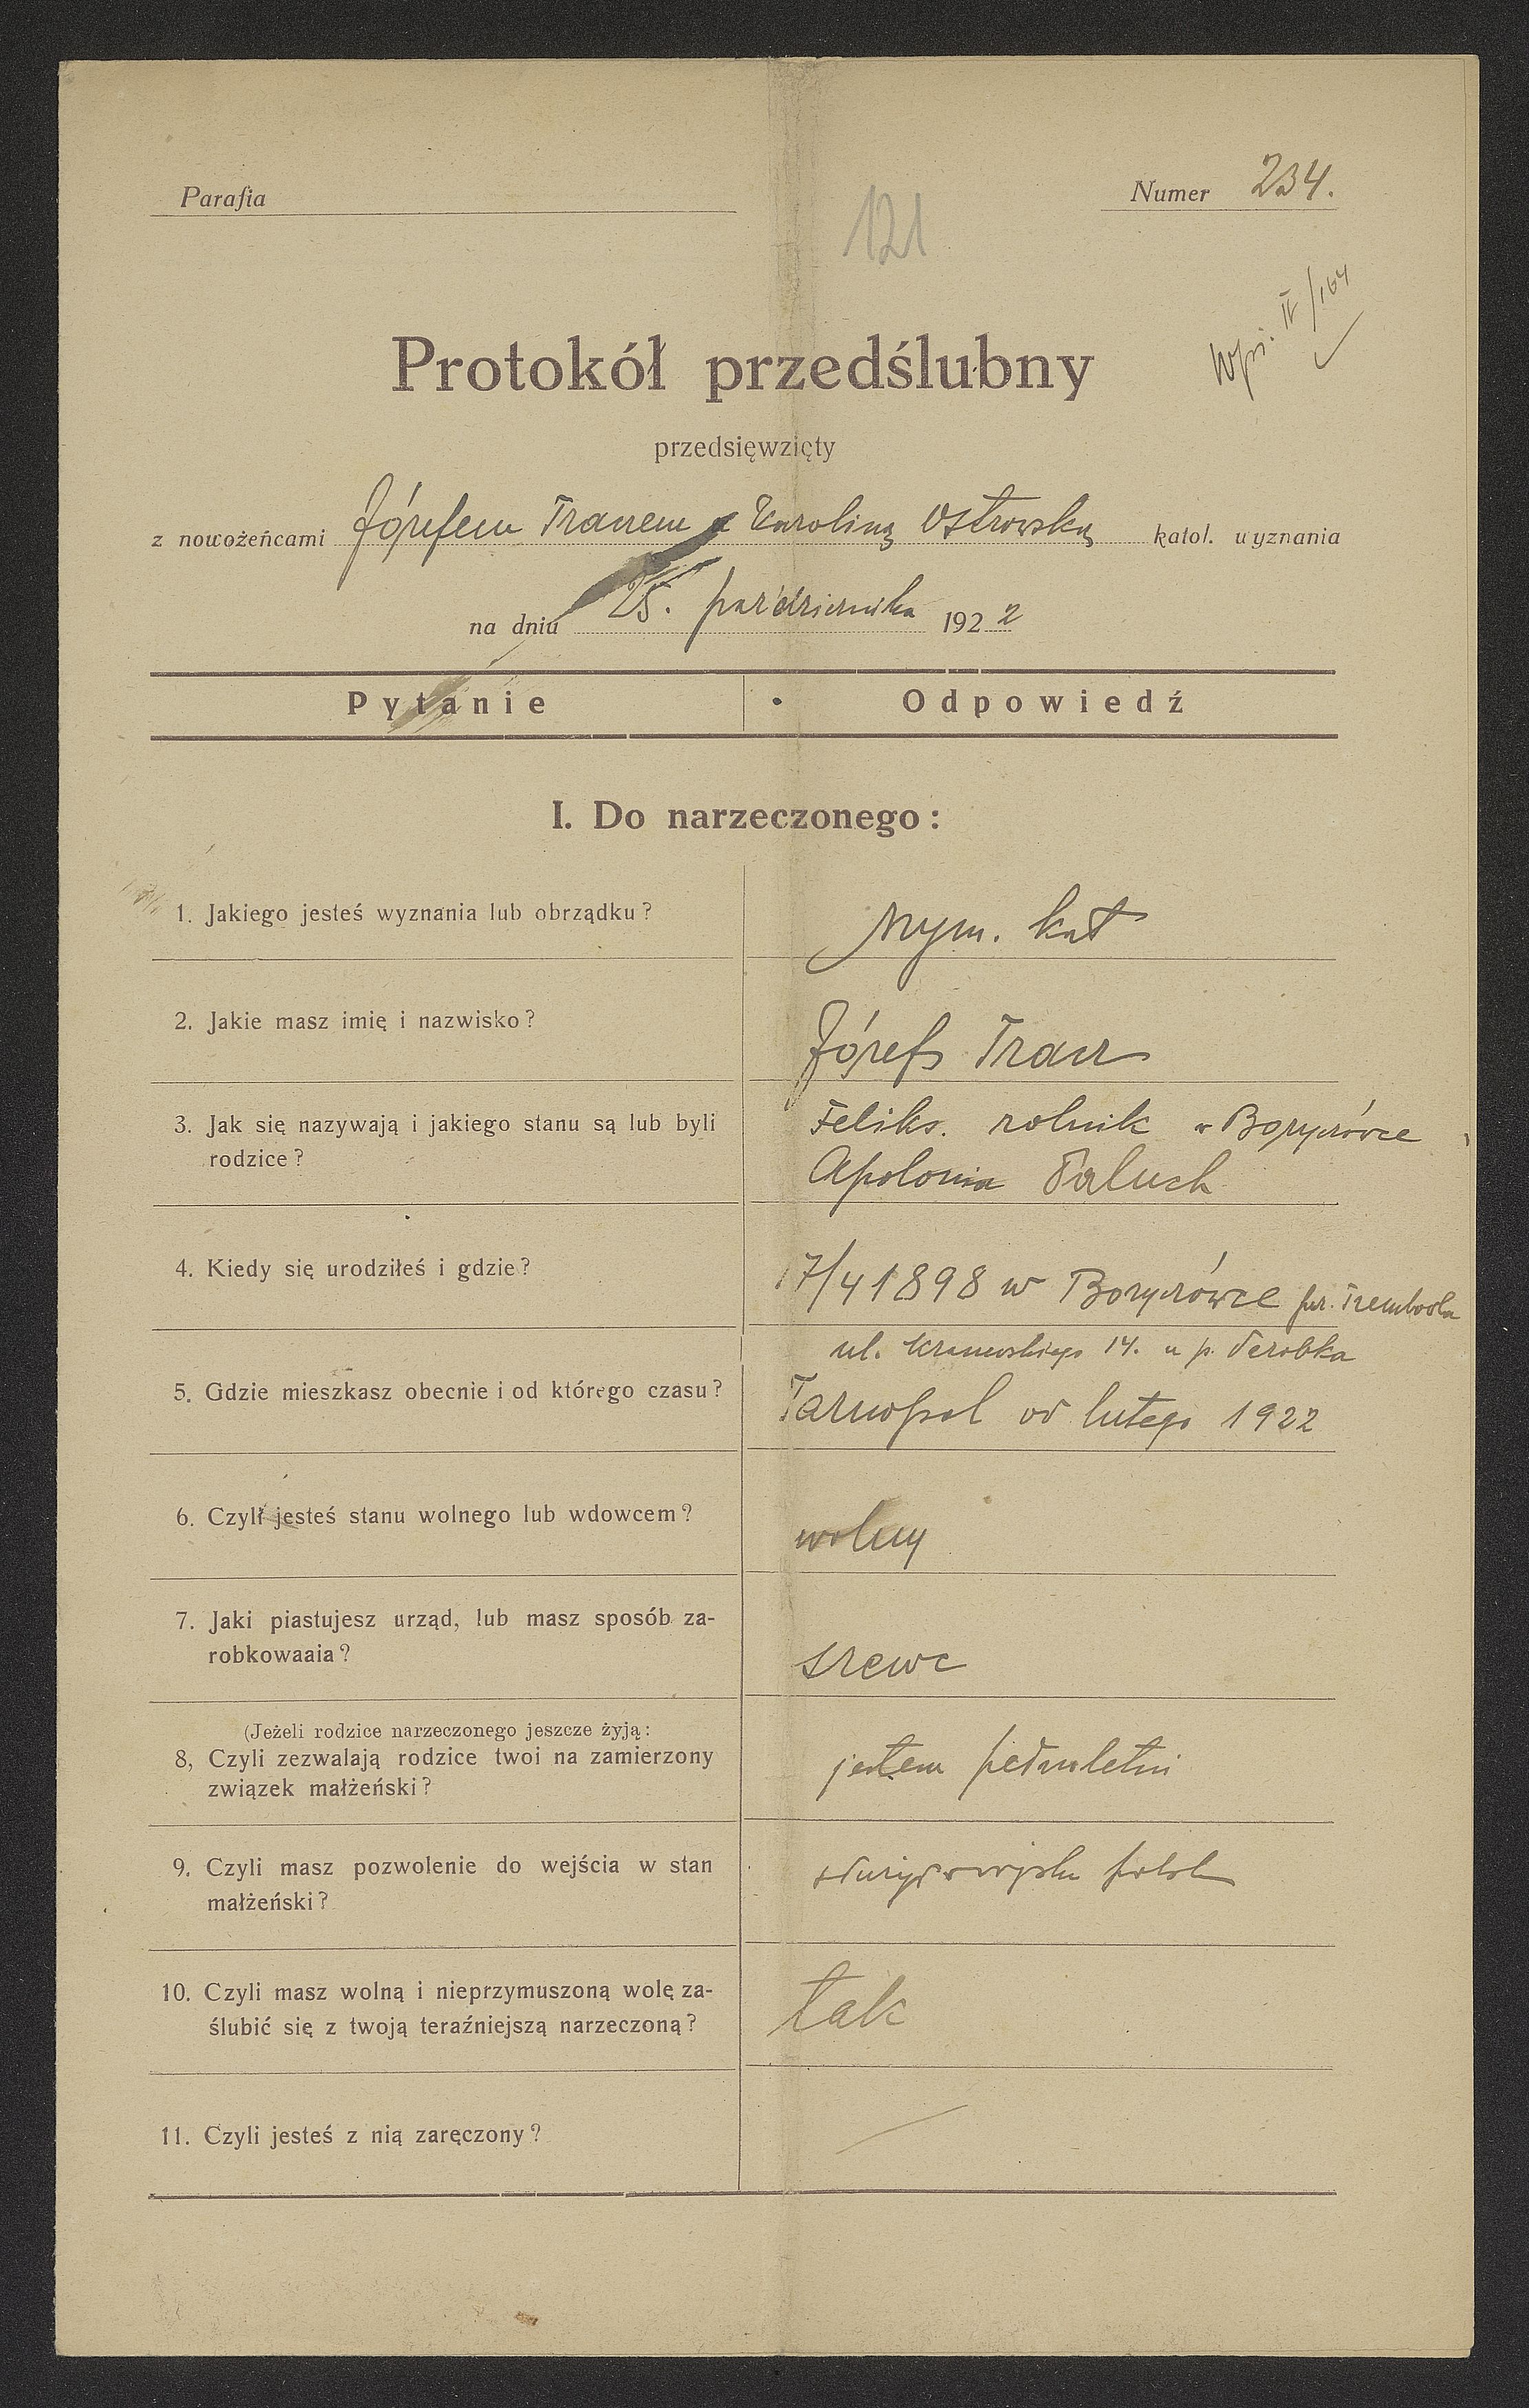 Parafia
Numer 234.
121
Wpi. II/164
Protokół przedślubny
przedsięwzięty
z nowożeńcami Józefem Traczem a Karoliną Ostrowską katol. wyznania
na dniu 25. października 1922
Pytanie Odpowiedź
I. Do narzeczonego:
1. Jakiego jesteś wyznania lub obrządku? rzym. kat
2. Jakie masz imię i nazwisko? Józef Tracz
3. Jak się nazywają i jakiego stanu są lub byli Feliks. rolnik w Boryczówce
rodzice? Apolonia Paluch
4. Kiedy się urodziłeś i gdzie? 17/4 1898 w Boryczówce
ul. 14. u p.
5. Gdzie mieszkasz obecnie i od którego czasu? Tarnopol od lutego 1922
6. Czyli jesteś stanu wolnego lub wdowcem? wolny
7. Jaki piastujesz urząd, lub masz sposób za-
robkowaaia? szewc
(Jeżeli rodzice narzeczonego jeszcze żyją:
8, Czyli zezwalają rodzice twoi na zamierzony jestem pełnoletni
związek małżeński?
9. Czyli masz pozwolenie do wejścia w stan służył w wojsku polsk
małżeński?
10. Czyli masz wolną i nieprzymuszoną wolę za- tak
ślubić się z twoją teraźniejszą narzeczoną?
11. Czyli jesteś z nią zaręczony?